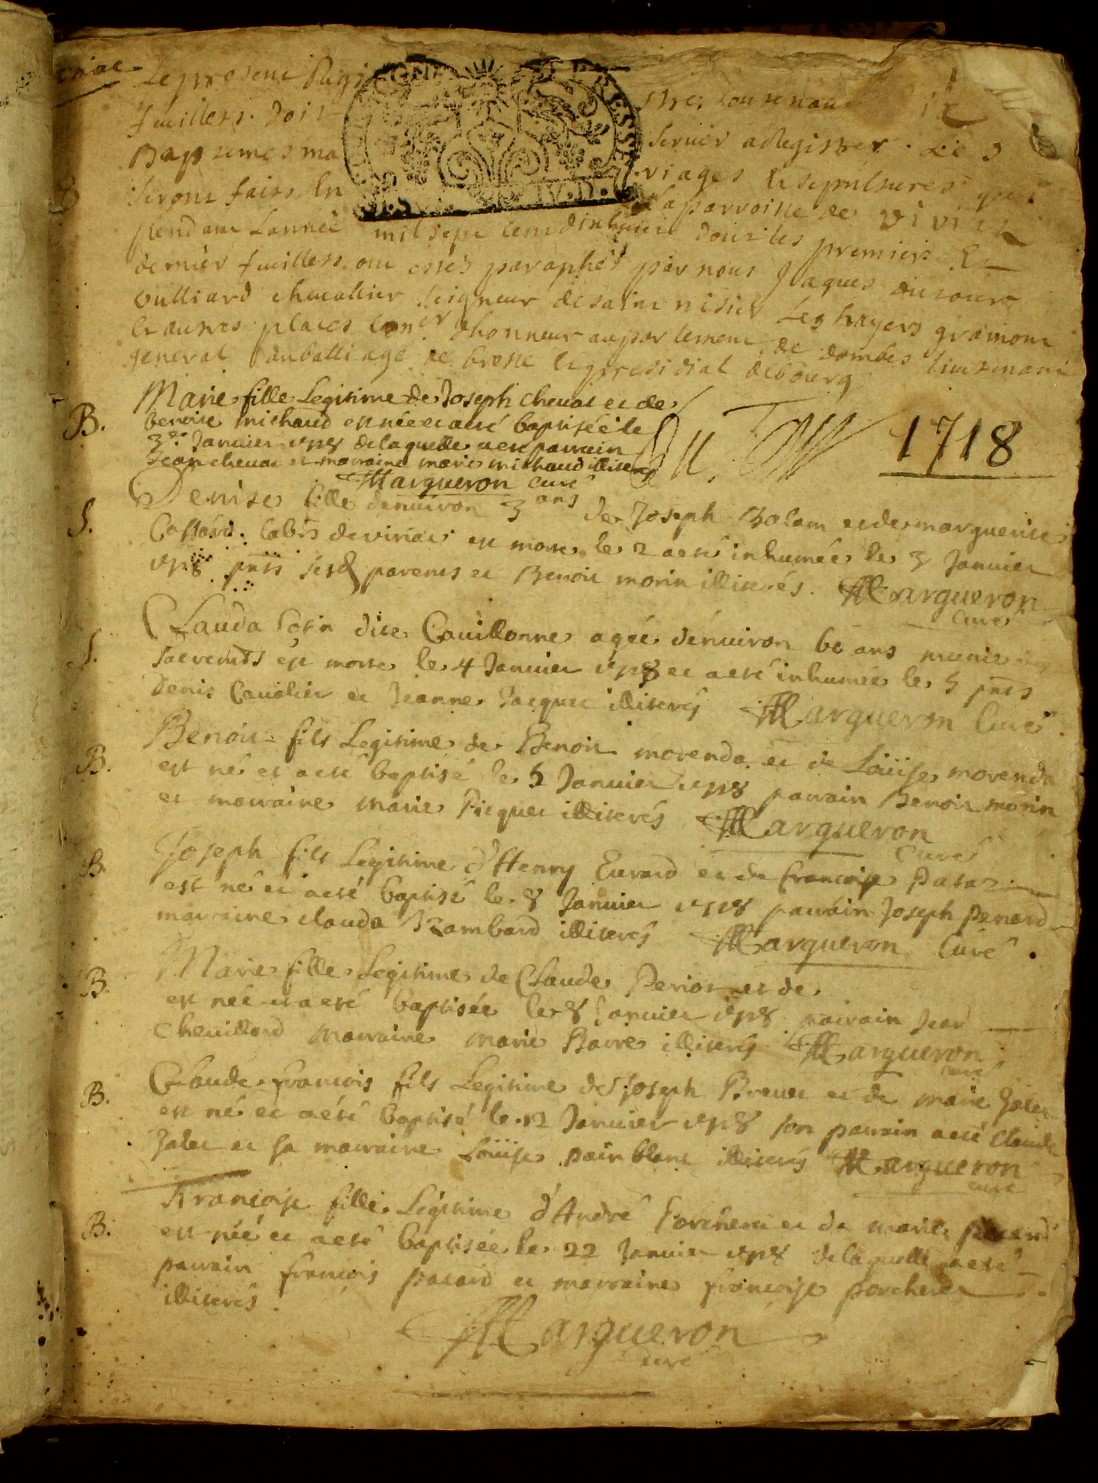 Le present Regi stre, contenant dix
feuillets doit servir a Registrer Les
Baptemes ma riages et sepultures qui
seront faits En la parroisse de viria
pendant Lannée mil sept cent dixhuict dont les premiers Et
dernier feuillets ont estés paraphés par nous Jaques
vulliard chevallier seigneur de saint nisier Les
et autres places con.er dhonneur au parlement de dombes lieutenant
general au balliage de bresse et presidial de bourg
1718
B. Marie fille Legitime de Joseph chevat et de
benoite michaud est née et a eté baptisée le
3e Janvier 1718 de laquelle a eté parrain
Jean chevat et marraine marie michaud illiteres
Margueron curé
S. Denise fille denuiron 3 ans de Joseph Bolam et de marguerite
de viriat est morte le 2 a eté inhumée le 3 Janvier
1718 pnts sesd parents et Benoit morin illiterés. Margueron
curé
S. Clauda dite Cavillonne agée denuiron 60 ans munie des
sacremts est morte le 4 Janvier 1718 et a eté inhumée le 5 pnts
Denis Cavalier et Jeanne Jacquet illiterés Margueron Curé
B. Benoit fils Legitime de Benoit morenda et de Loüise morenda
est né et a eté baptisé le 5 Janvier 1718 parrain Benoit morin
et marraine marie Picquet illiterés Margueron
Curé
B. Joseph fils Legitime d'Henry Evrard et de francoise
est né et a eté baptisé le 8 Janvier 1718 parrain Joseph Penard
marraine clauda Rambard illiterés Margueron Curé.
B. Marie fille Legitime de Claude Perior et de
est née et a eté baptisée le 8 Janvier 1718 parrain Jean
Chevillard marraine marie Barre illiterés Margueron
curé
B. Claude francois fils Legitime de Joseph Brevet et de marie
est né et a eté baptisé le 12 Janvier 1718 son parrain a eté Claude
et sa marraine Loüise painblanc illiterés Margueron
curé
B. Francoise fille Legitime d'André Porcheret et de marie
est née et a eté baptisée le 22 Janvier 1718 de laquelle a eté
parrain francois pacard et marraine francoise porcheret
illiterés.
Margueron
curé